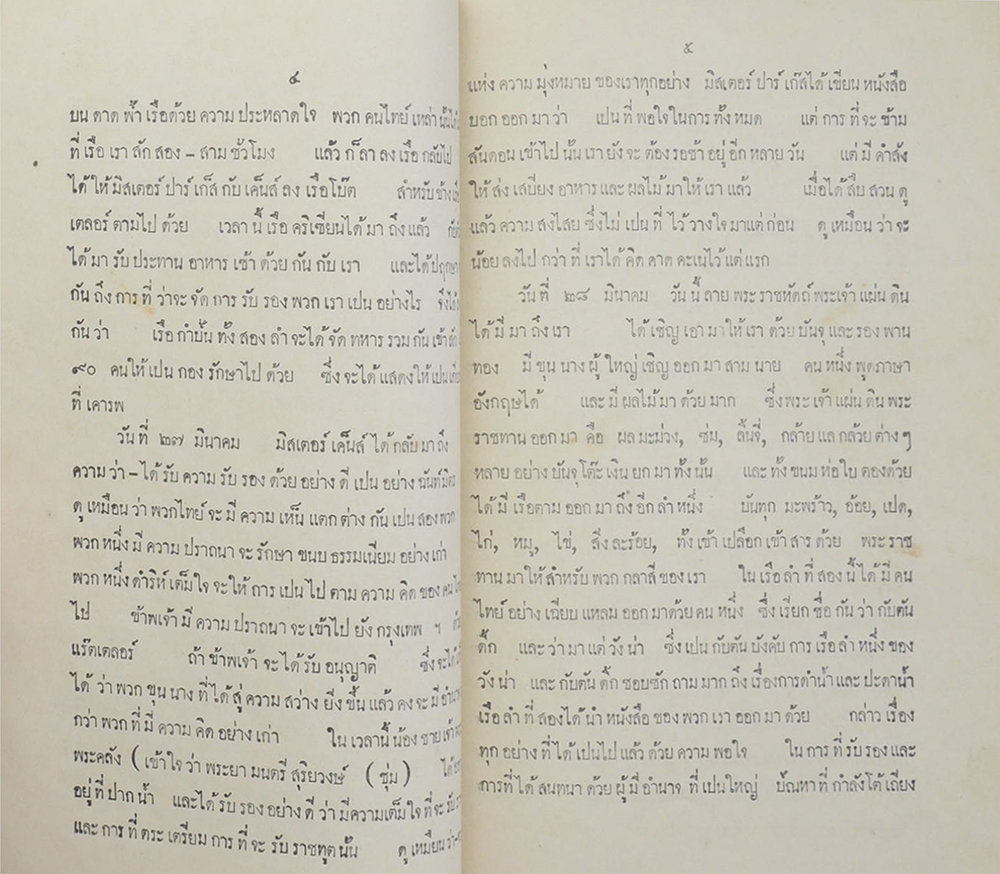 ๔
บน ดาด ฟ้า เรือด้วย ความ ประหลาดใจ พวก คนไทย์ เหล่า นั้นได้
ที่ เรือ เรา สัก สอง – สาม ชั่วโมง แล้ว ก็ ลา ลง เรือ กลับไป
ได้ ให้ มิสเตอร์ ปาร์ เก็ส กับ เค็นส์ ลง เรือ โบ๊ต สำหรับ
เตลอร์ ตามไป ด้วย เวลา นี้ เรือ คริเซี่ยน ได้ มา ถึง แล้ว
ได้ มา รับ ประทาน อาหาร เช้า ด้วย กัน กับ เรา และได้
กัน ถึง การ ที่ ว่าจะ จัด การ รับ รอง พวก เรา เปน อย่างไร
กัน ว่า เรือ กำปั่น ทั้ง สอง ลำ จะได้ จัด ทหาร รวม กัน
๙๐ คนให้ เปน กอง รักษา ไป ด้วย ซึ่ง จะได้ แสดง ให้ เปน
ที่ เคารพ
วัน ที่ ๒๗ มีนาคม มิสเตอร์ เค็นส์ ได้ กลับ มา ถึง
ความ ว่า – ได้ รับ ความ รับ รอง ด้วย อย่าง ดี เปน อย่าง
ดู เหมือน ว่า พวกไทย์ จะ มี ความ เห็น แตก ต่าง กัน เปน สอง พวก
พวก หนึ่ง มี ความ ปราถนา จะ รักษา ขนบ ธรรมเนียม อย่าง เก่า
พวก หนึ่ง ดำริห์ เต็ม ใจ จะให้ การ เปน ไป ตาม ความ คิด ของ คน
ไป ข้าพเจ้า มี ความ ปราถนา จะ เข้าไป ยัง กรุงเทพ ฯ
แร๊ตเตลอร์ ถ้า ข้าพเจ้า จะได้ รับ อนุญาติ ซึ่ง จะได้
ได้ ว่า พวก ขุน นาง ที่ ได้ สู่ ความ สว่าง ยิ่ง ขึ้น แล้ว คง จะ มี
กว่า พวก ที่ มี ความ คิด อย่าง เก่า ใน เวลา นี้ น้อง ชาย เจ้า
พระคลัง ( เข้าใจ ว่า พระยา มนตรี สุริยวงษ์ ( ชุ่ม )
อยู่ ที่ ปาก น้ำ และได้ รับ รอง อย่าง ดี ว่า มี ความ เต็ม ใจ ที่ จะ รับ
และ การ ที่ ตระ เตรียม การ ที่ จะ รับ ราชทูต นั้น ดู เหมือน
๕
แห่ง ความ มุ่งหมาย ของ เรา ทุก อย่าง มิสเตอร์ ปาร์ เก๊สได้ เขียน หนังสือ
บอก ออก มา ว่า เปน ที่ พอใจ ในการ ทั้ง หมด แต่ การ ที่ จะ ข้าม
สันดอน เข้าไป นั้น เรา ยัง จะ ต้อง รอช้า อยู่ อีก หลาย วัน แต่ มี คำสั่ง
ให้ ส่ง เสบียง อาหาร และ ผลไม้ มา ให้ เรา แล้ว เมื่อได้ สืบ สวน ดู
แล้ว ความ สงไสย ซึ่งไม่ เปน ที่ ไว้ วางใจ มาแต่ ก่อน ดู เหมือน ว่า จะ
น้อย ลงไป กว่า ที่ เราได้ คิด คาด คะเนไว้ แต่ แรก
วัน ที่ ๒๘ มีนาคม วัน นี้ ลาย พระ ราชหัตถ์ พระเจ้า แผ่น ดิน
ได้ มี มา ถึง เรา ได้ เชิญ เอา มาให้ เรา ด้วย บันจุ และ รอง พาน
ทอง มี ขุน นาง ผู้ ใหญ่ เชิญ ออก มา สาม นาย คน หนึ่ง พูดภาษา
อังกฤษได้ และ มี ผลไม้ มา ด้วย มาก ซึ่งพระ เจ้า แผ่น ดิน พระ
ราชทาน ออก มา คือ ผล มะม่วง, ชมภู่, ลิ้นจี่, กล้าย แล กล้วย ต่าง ๆ
หลาย อย่าง บันจุ โต๊ะ เงิน ยก มา ทั้ง นั้น และ ทั้ง ขนม ห่อ ใบ ตองด้วย
ได้ มี เรือตาม ออก มา ถึง อีก ลำ หนึ่ง บันทุก มะพร้าว, อ้อย, เปด,
ไก่, หมู, ไข่, สิ่ง ละร้อย, ทั้ง เข้า เปลือก เข้า สาร ด้วย พระ ราช
ทาน มาให้ สำหรับ พวก กลาสี ของ เรา ใน เรือ ลำ ที่ สอง นี้ ได้ มี คน
ไทย์ อย่าง เฉียบ แหลม ออก มาด้วย คน หนึ่ง ซึ่ง เรียก ชื่อ กัน ว่า กับตัน
ดิ๊ก และ ว่า มา แต่ วัง น่า ซึ่ง เปน กับตัน บังคับ การ เรือ ลำ หนึ่ง ของ
วัง น่า และ กับตัน ดิ๊ก ชอบ ซัก ถาม มาก ถึง เรื่อง การดำน้ำ และ ปะดาน้ำ
เรือ ลำ ที่ สองได้ นำ หนังสือ ของ พวก เรา ออก มา ด้วย กล่าว เรื่อง
ทุก อย่าง ที่ได้ เปนไป แล้ว ด้วย ความ พอใจ ใน การ ที่ รับ รอง และ
การที่ได้ สนทนา ด้วย ผู้ มี อำนาจ ที่ เปนใหญ่ ปัณหา ที่ กำลังโต้ เถียง